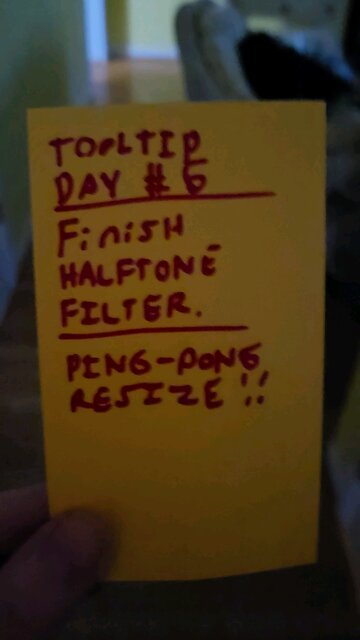 TOOLTIP
DAY #6
FiniSH
HALFTONE
FILTER.
PING-PONG
RESIZE!!